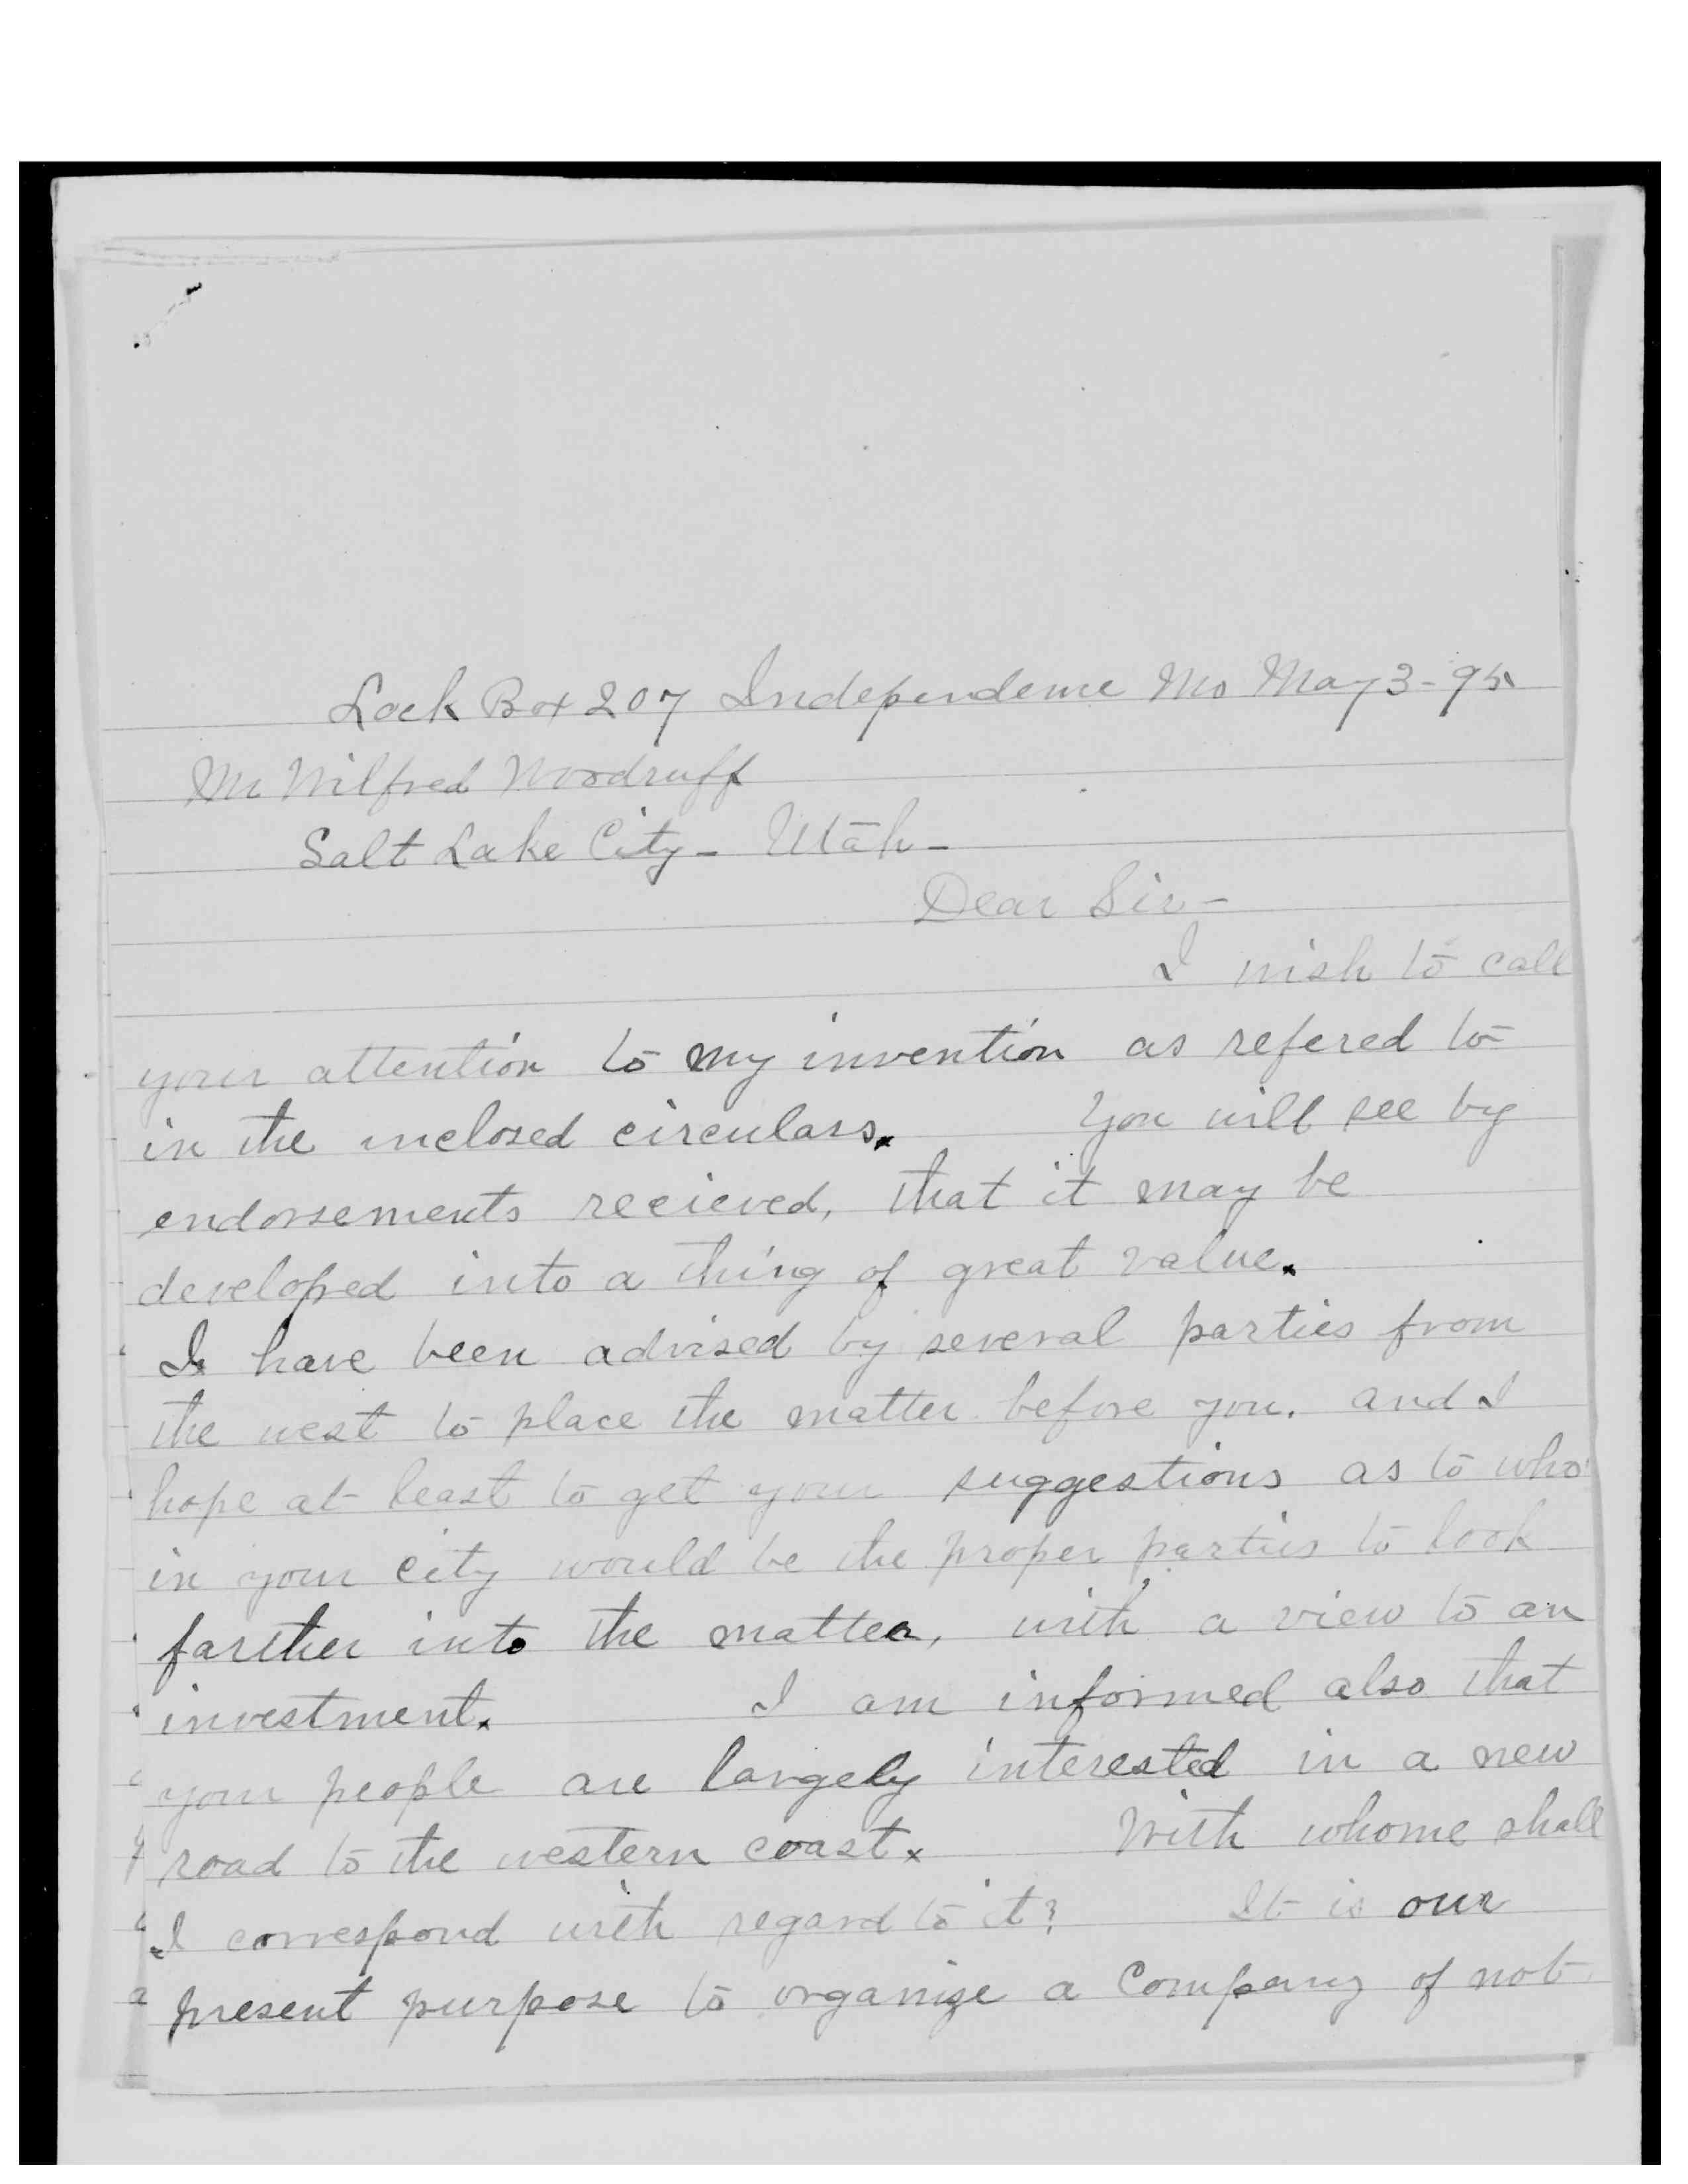 Lock Box 207 Independence Mo May 3-95
Mr Wilfred Woodruff
Salt Lake City - Utah -
Dear Sir -
I wish to call
your attention to my invention as refered to
in the inclosed circulars. You will see by
endorsements recieved, that it may be
developed into a thing of great value.
I have been advised by several parties from
the west to place the matter before you. and I
hope at least to get your suggestions as to who
in your city would be the proper parties to look
farther into the matter, with a view to an
investment. I am informed also that
your people are largely interested in a new
road to the western coast. With whome shall
I correspond with regard to it? It is our
present purpose to organize a Company of not